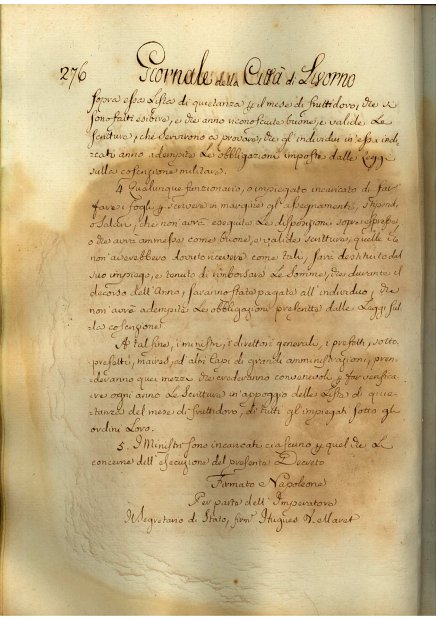 276 Giornale della Città di Livorno
sopra essa Lista di quietanza p il mese di fruttidoro, che si
sono fatti esibire, e che anno riconosciute buone, e valide Le
Scritture, che servirono a provare, che gl'individui in essa indi,,
cati anno adempite Le obbligazioni imposte dalle Leggi
sulla coscrizione militare.
4. Qualunque funzionario, o impiegato incaricato di far
fare i fogli, e scrivere in margine gli assegnamenti, Stipendi,
o Salari, che non avrà eseguite Le disposizioni sopra espresse
o che avrà ammesse come buone, e valide scritture, quelle che
non averebbero dovuto ricevere come tali, sarà destituito dal
suo impiego, e tenuto di rimborsare Le somme, che durante il
decorso dell'Anno, saranno state pagate all'individuo, che
non avrà adempite Le obbligazioni prescritte dalle Leggi sul,,
la coscrizione.
A tal fine, i ministri, i direttori generali, i prefetti, sotto,,
prefetti, maires, ed altri Capi di grandi amministrazioni, pren,,
deranno quei mezzi che crederanno convenevoli p far verifica,,
re ogni anno Le Scritture in appoggio delle Liste di quie,,
tanza del mese di fruttidoro, di tutti gl'impiegati sotto gli
ordini Loro.
5. I Ministri sono incaricati ciascuno p quel che Le
concerne dell'esecuzione del presente Decreto
Firmato Napoleone
Per parte dell'Imperatore
Il Segretario di Stato, firm. Hugues B. Maret